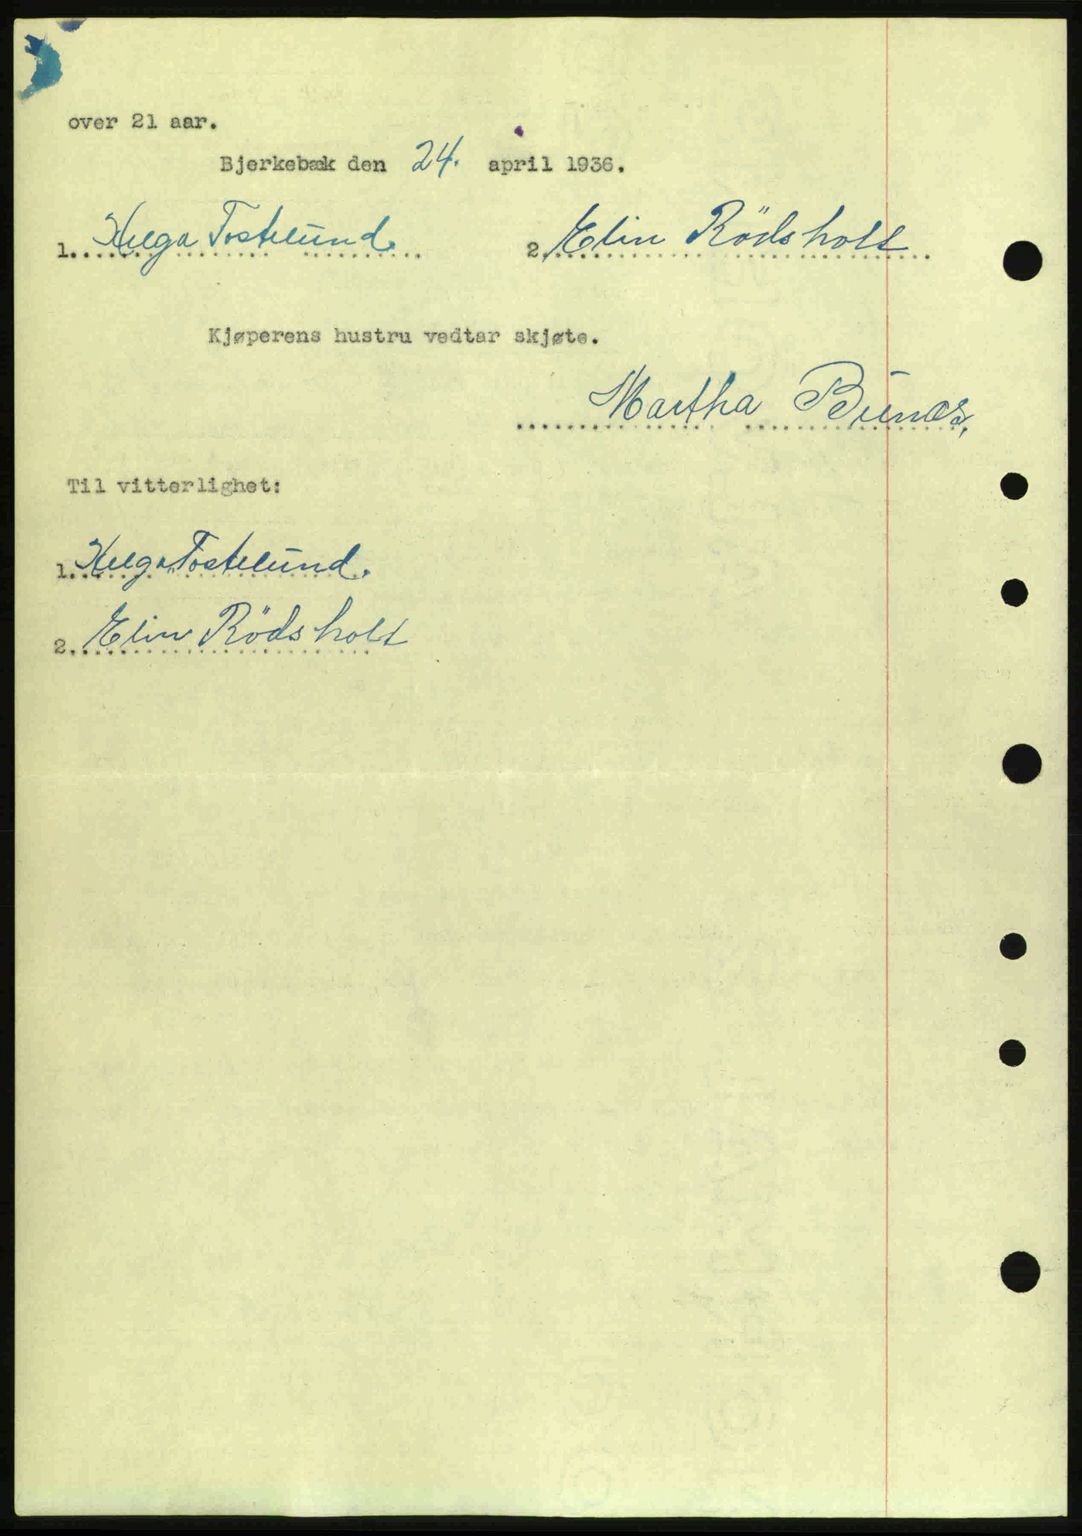 over 21 aar.
Bjerkebæk den 24. april 1936.
1. Helga Tostelund. 2. Elin Rödsholt
Kjøperens hustru vedtar skjøte.
Martha Bunæs.
Til vitterlighet:
1. Helga Tostelund.
2. Elin Rödsholt